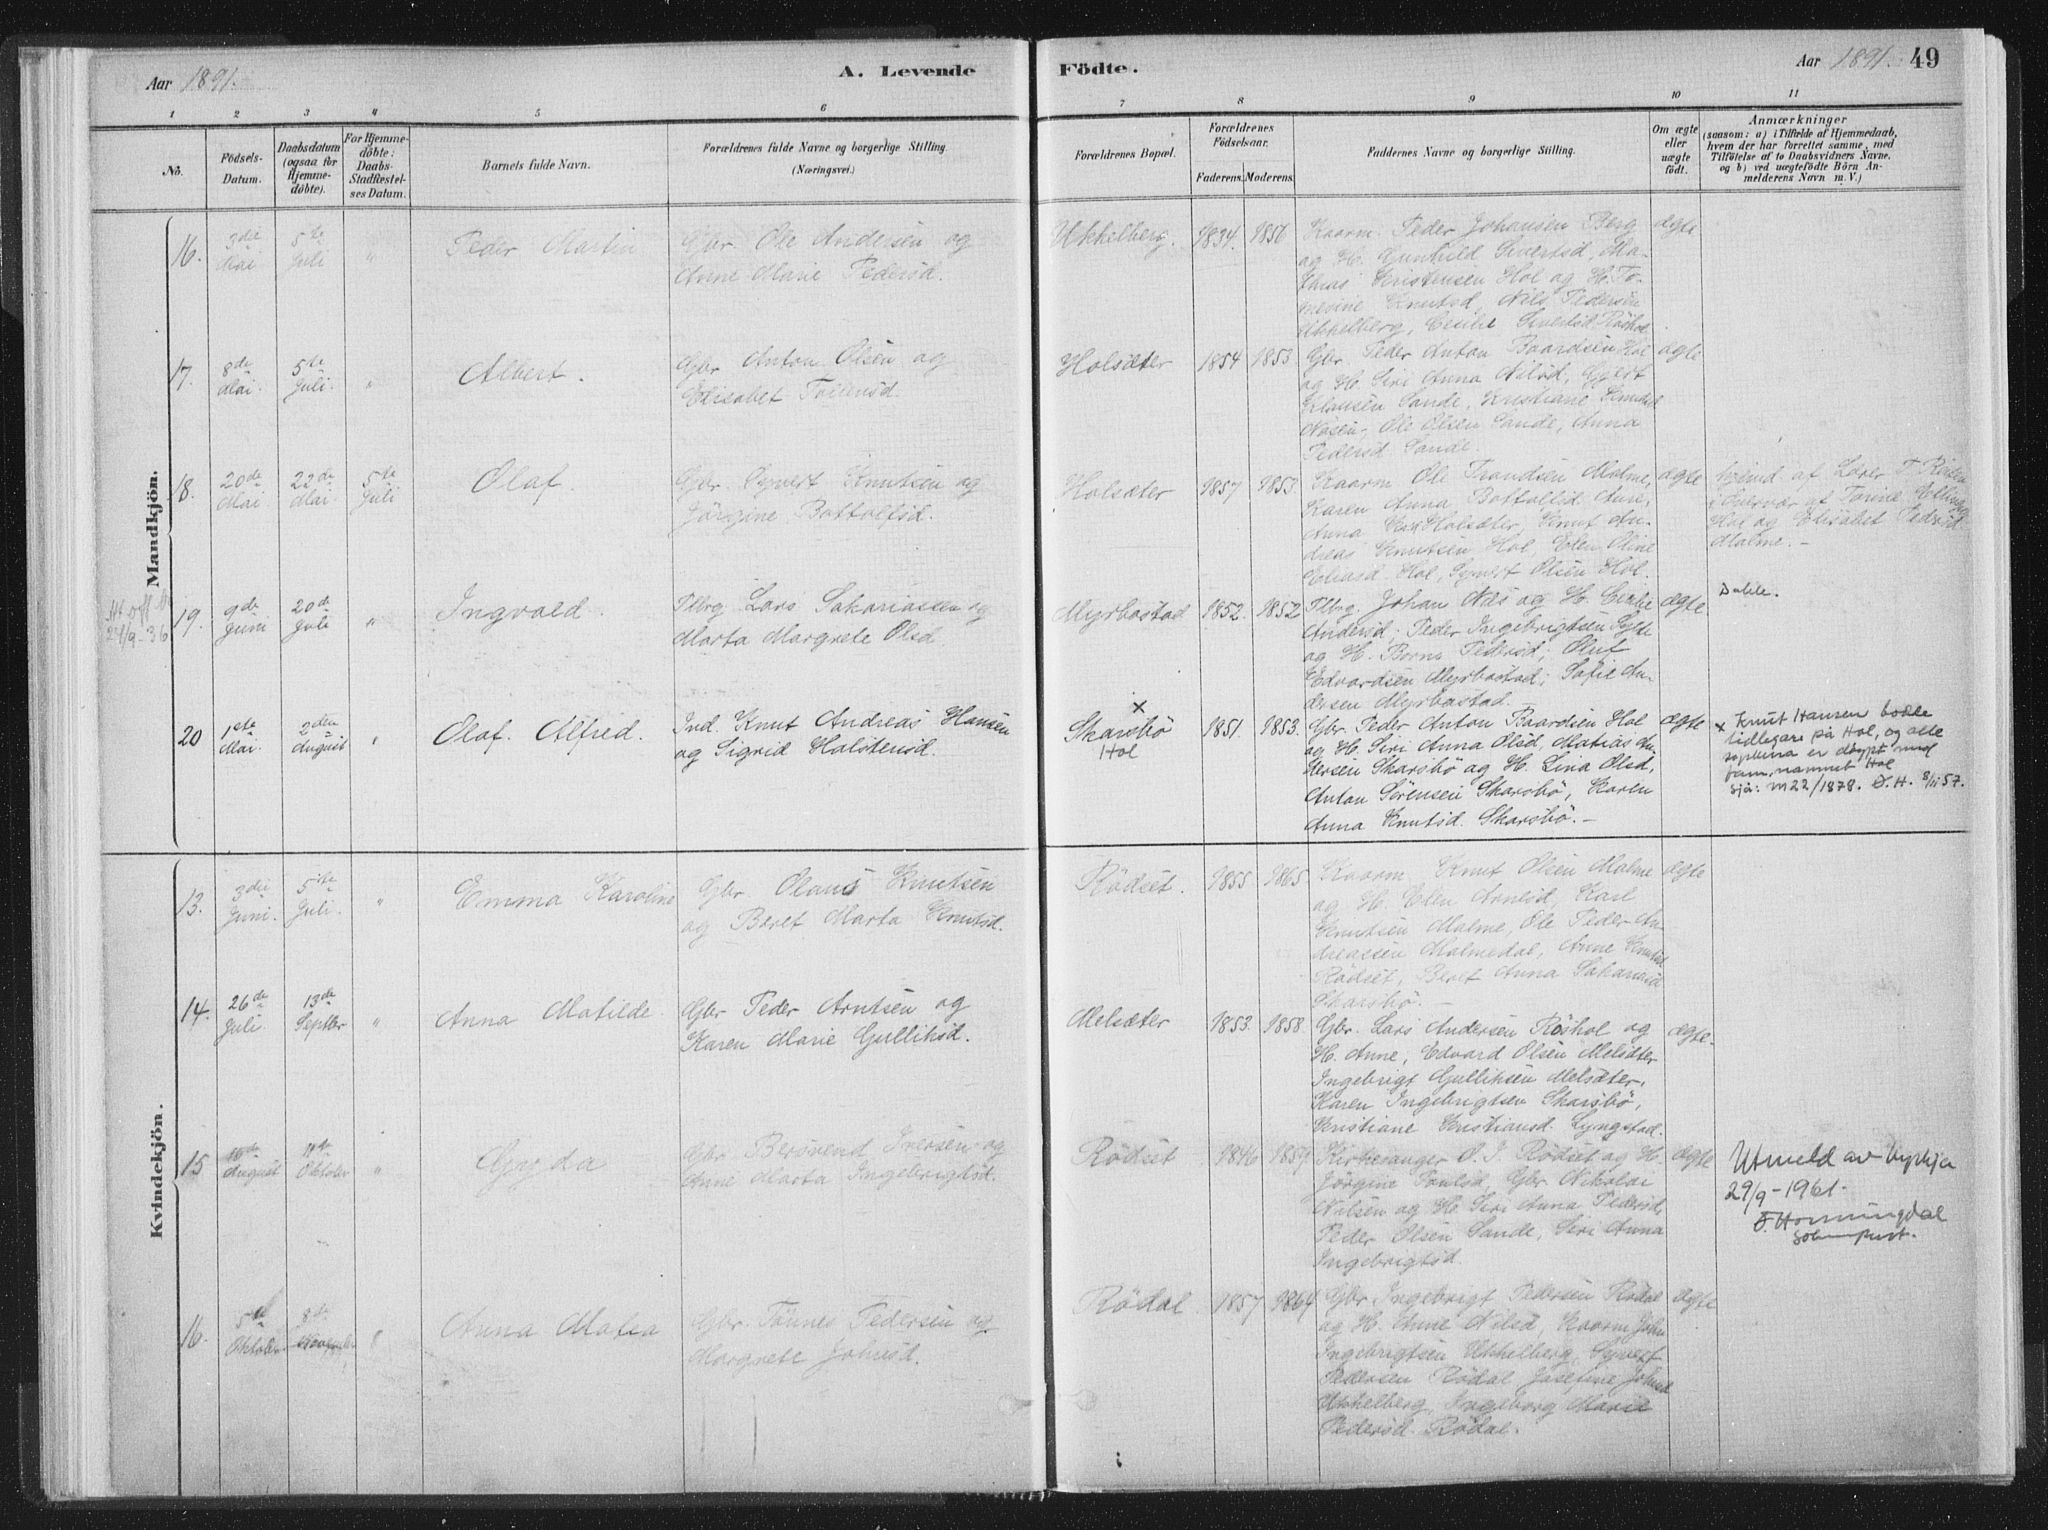 Aar 1891.
A. Levende Födte.
Aar 1891. 49
1 2 3 4 5 6 7 8 9 10 11
No.
Födsels-
Datum.
Daabsdatum
(ogsaa for
Hjemme-
döbte).
For Hjemme-
döbte:
Daabs-
Stadfæstel-
ses Datum.
Barnets fulde Navn.
Forældrenes fulde Navne og borgerlige Stilling.
(Næringsvei.)
Forældrenes Bopæl.
Forældrenes
Födselsaar.
Faderens. Moderens.
Faddernes Navne og borgerlige Stilling.
Om ægte
eller
uægte
födt.
Anmærkninger
(saasom: a) i Tilfælde af Hjemmedaab,
hvem der har forrettet samme, med
Tilföielse af to Daabsvidners Navne,
og b) ved uægtefödte Börn An-
melderens Navn m. V.)
Mandkjön.
16. 3die Mai 5te Juli " Peder Martin
Gbr. Ole Andersen og
Anne Marie Pedersd.
Ukkelberg. 1834. 1856
Kaarm. Peder Johansen Berg
og H. Gunhild Sivertsd, Ma-
thias Kristensen Hol og H. To-
mesine Knutsd, Nils Pedersen
Ukkelberg, Cecilie Sivertsd Röshol
ægte
17. 8de Mai. 5te Juli. " Albert.
Gbr Anton Olsen og
Elisabet
Holsæter 1854 1853.
Gbr. Peder Anton Baardsen Hol
og H. Siri Anna Nilsd, Gjert
Klausen Sande, Kristiane Knutsd
Næsen, Ole Olsen Sande, Anna
Pedersd Sande.
ægte
18. 20de Mai 22de Mai. 5te Juli Olaf.
Gbr. Syvert Knutsen og
Jörgine Bottolfsd.
Holsæter 1857 1853.
Kaarm Ole Trondsen Malme,
Karen Anna Bottolfsd Aure,
Anna Holsæter, Knut An-
dreas Knutsen Hol, Elen Oline
Eliasd Hol, Syvert Olsen Hol.
ægte
af Lærer
i Overvær af Torine
Hol og Elisabet Pedersd
Malme. -
24/9-36
19. 9de Juni 20de Juli " Ingvald.
Flbrg. Lars Sakariassen og
Marta Margrete Olsd
Myrbostad 1852. 1852
Flbrg. Johan Næs og H. Cecilie
Andersd; Peder Ingebrigtsen Sylte
og H. Berne Pedersd; Oluf
Edvardsen Myrbostad; Sofie An-
dersen Myrbostad.
ægte
Dahle.
20 1ste Mai. 2den August " Olaf. Alfred.
Ind. Knut Andreas Hansen
og Sigrid Halstensd.
x
Skarsbö
Hol
1851. 1853.
Gbr. Peder Anton Baardsen Hol
og H. Siri Anna Olsd, Matias An-
dersen Skarsbö og H. Lina Olsd,
Anton Sörensen Skarsbö, Karen
Anna Knutsd. Skarsbö. -
ægte
x Knut Hansen bodde
tidlegare på Hol, og alle
syskena er döypt med
fam.namnet Hol
Sjå: m22/1878. Ø.H. 8/11 57.
Kvindekjön.
13. 3die Juni. 5te Juli. " Emma Karoline
Gbr. Olaus Knutsen
og Beret Marta Knutsd.
Rödset. 1855 1865
Kaarm. Knut Olsen Malme
og H. Elen Arnesd, Karl
Knutsen Malme, Ole Peder An-
dreassen Malmedal, Anne Knutsd
Rödset, Beret Anna Sakariasd
Skarsbö. -
ægte
14. 26de Juli. 13de Septbr " Anna Matilde.
Gbr Peder Arntsen og
Karen Marie Gulliksd.
Melsæter 1853. 1858.
Gbr. Lars Andersen Röshol og
H. Anne, Edvard Olsen Melsæter
Ingebrigt Gulliksen Melsæter,
Karen Ingebrigtsen Skarsbö,
Kristiane Kristiansd Lyngstad.
ægte.
15 August Oktober " Gyda
Gbr Bersvend Iversen og
Anne Marta Ingebrigtsd.
Rödset 1846 1859
Kirkesanger O. I. Rödset og H.
Jörgine Poulsd, Gbr. Nikolai
Nilsen og H. Siri Anna Pedersd,
Peder Olsen Sande, Siri Anna
Ingebrigtsd.
ægte
Utmeld av kyrkja
29/9-1961.
Hornungdal
sokneprest.
16. 5te Oktober 8de " Anna Matea
Gbr. Tönnes Pedersen og
Margrete Johnsd.
Rödal 1857 1864
Gbr Ingebrigt Pedersen Rödal
og H. Anne Nilsd, Kaarm John
Ingebrigtsen Ukkelberg, Syvert
Pedersen Rödal Josefine Johnsd
Ukkelberg, Ingeborg Marie
Pedersd. Rödal.
ægte